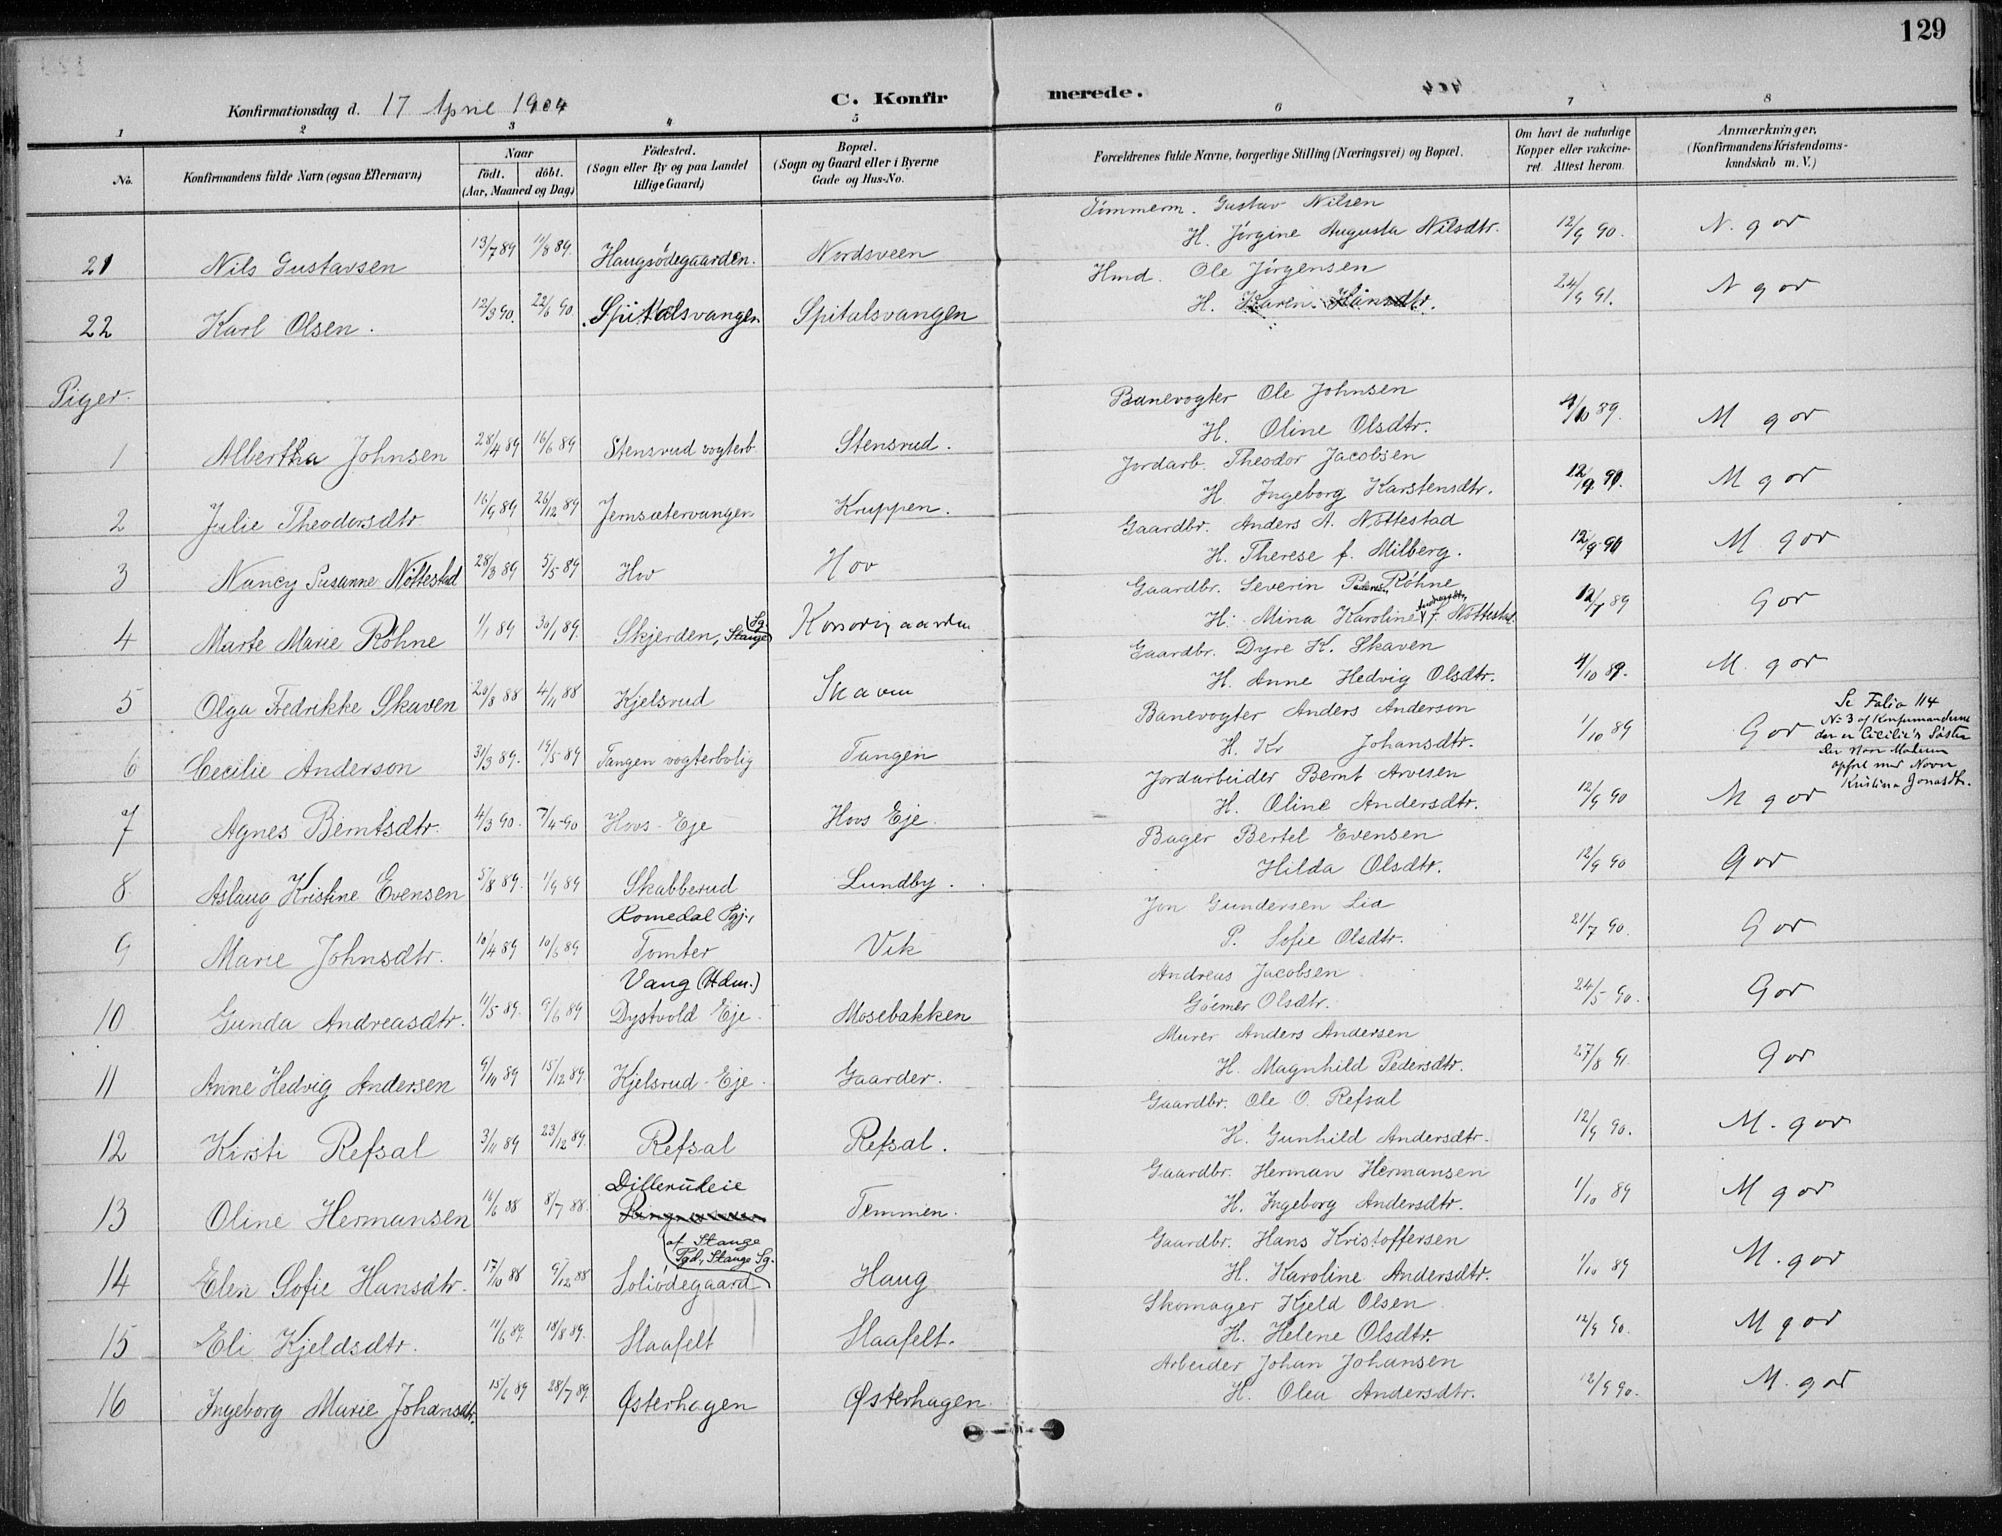 129
Konfirmationsdag d. 17 April 1904 C. Konfirmerede.
1 2 3 4 5 6 7 8
No. Konfirmandens fulde Navn (ogsaa Efternavn) Naar födt. döbt. (Aar, Maaned og Dag) Födested. (Sogn eller By og paa Landet tillige Gaard) Bopæl. (Sogn og Gaard eller i Byerne Gade og Hus-No. Forældrenes fulde Navne, borgerlige Stilling (Næringsvei) og Bopæl. Om havt de naturlige Kopper eller vakcineret. Attest herom. Anmærkninger, (Konfirmandens Kristendomskundskab m. V.)
Tömmerm. Gustav Nilsen
21 Nils Gustavsen 13/7 89 11/8 89. Haugsödegaarden. Nordsveen H. Jörgine Augusta Nilsdtr. 12/9 90. N. gor
Hmd. Ole Jörgensen
22 Karl Olsen. 12/3 90. 22/6 90 Spitalsvangen Spitalsvangen H. Karen Hansdtr. 24/9 91. N gor
Piger.
Banevogter Ole Johnsen
1 Albertha Johnsen 28/4 89 16/6 89 Stensrud vogterb. Stensrud. H. Oline Olsdtr. 1/10 89. M gor
Jordarb. Theodor Jacobsen
2 Julie Theodorsdtr 16/9 89 26/12 89 Jemsætervangen Kruppen. H. Ingeborg Karstensdtr. 12/9 90. M gor
Gaardbr. Anders A. Nöttestad
3 Nancy Susanne Nöttestad 28/3 89 5/5 89 Hov Hov H. Therese f. Milberg. 12/9 90 M gor
Gaardbr. Severin Pedersen Röhne
4 Marte Marie Röhne 1/1 89 30/1 89. Skjerden, Stange Sg. Korsorigaarden H. Mina Karoline Andersdtr. f. Nöttestad 12/7 89 Gor
Gaardbr. Dyre K. Skaven
5 Olga Fredrikke Skaven 20/8 88 4/11 88 Kjelsrud Skaven H. Anne Hedvig Olsdtr. 1/10 89. M. gor
Banevogter Anders Anderson
6 Cecilie Anderson 31/3 89. 19/5 89 Tangen vogterbolig Tangen H. Kr Johansdtr. 1/10 89 Gor
Se Folio 114
No 3 af Konfirmanderne
der er Cecilie's Söster
der staar Moderen
opført med Navn
Kristina Jonasdtr.
Jordarbeider Bernt Arvesen
7 Agnes Berntsdtr. 4/3 90. 7/4 90 Hovs-Eje Hovs Eje. H. Oline Andersdtr. 12/9 90 M gor
Bager Bertel Evensen
8 Aslaug Kristine Evensen 5/8 89. 1/9 89 Skabberud Lundby. Hilda Olsdtr. 12/9 90 Gor
Romedal Pgj., Jon Gundersen Lia
9 Marie Johnsdtr. 10/4 89 10/6 89 Tomter Vik P. Sofie Olsdtr. 21/7 90. Gor
Vang (Hdm.) Andreas Jacobsen
10 Gunda Andreasdtr. 11/5 89. 9/6 89 Dystvold Eje. Mosebakken Olsdtr. 24/5 90. Gor
Murer Anders Andersen
11 Anne Hedvig Andersen 9/10 89 15/12 89. Kjelsrud-Eje. Gaarder. H. Magnhild Pedersdtr. 27/8 91 Gor
Gaardbr. Ole O. Refsal
12 Kirsti Refsal 3/11 89 23/12 89. Refsal Refsal. H. Gunhild Andersdtr. 12/9 90. M. gor
Dillerudeie Gaardbr. Herman Hermansen
13 Oline Hermansen 16/6 88 8/7 88. Temmen. H. Ingeborg Andersdtr. 1/10 89 M gor
af Stange Pgd., Stange Sg. Gaardbr. Hans Kristoffersen
14 Elen Sofie Hansdtr. 17/10 88 9/12 88 Soliødegaard Haug H. Karoline Andersdtr. 1/10 89 M. gor
Skomager Kjeld Olsen
15 Eli Kjeldsdtr. 11/6 89. 18/8 89. Slaafelt Slaafelt. H. Helene Olsdtr. 12/9 90. M gor
Arbeider Johan Johansen
16 Ingeborg Marie Johansdtr. 15/6 89 28/7 89 Østerhagen Østerhagen. H. Olea Andersdtr. 12/9 90. M. gor